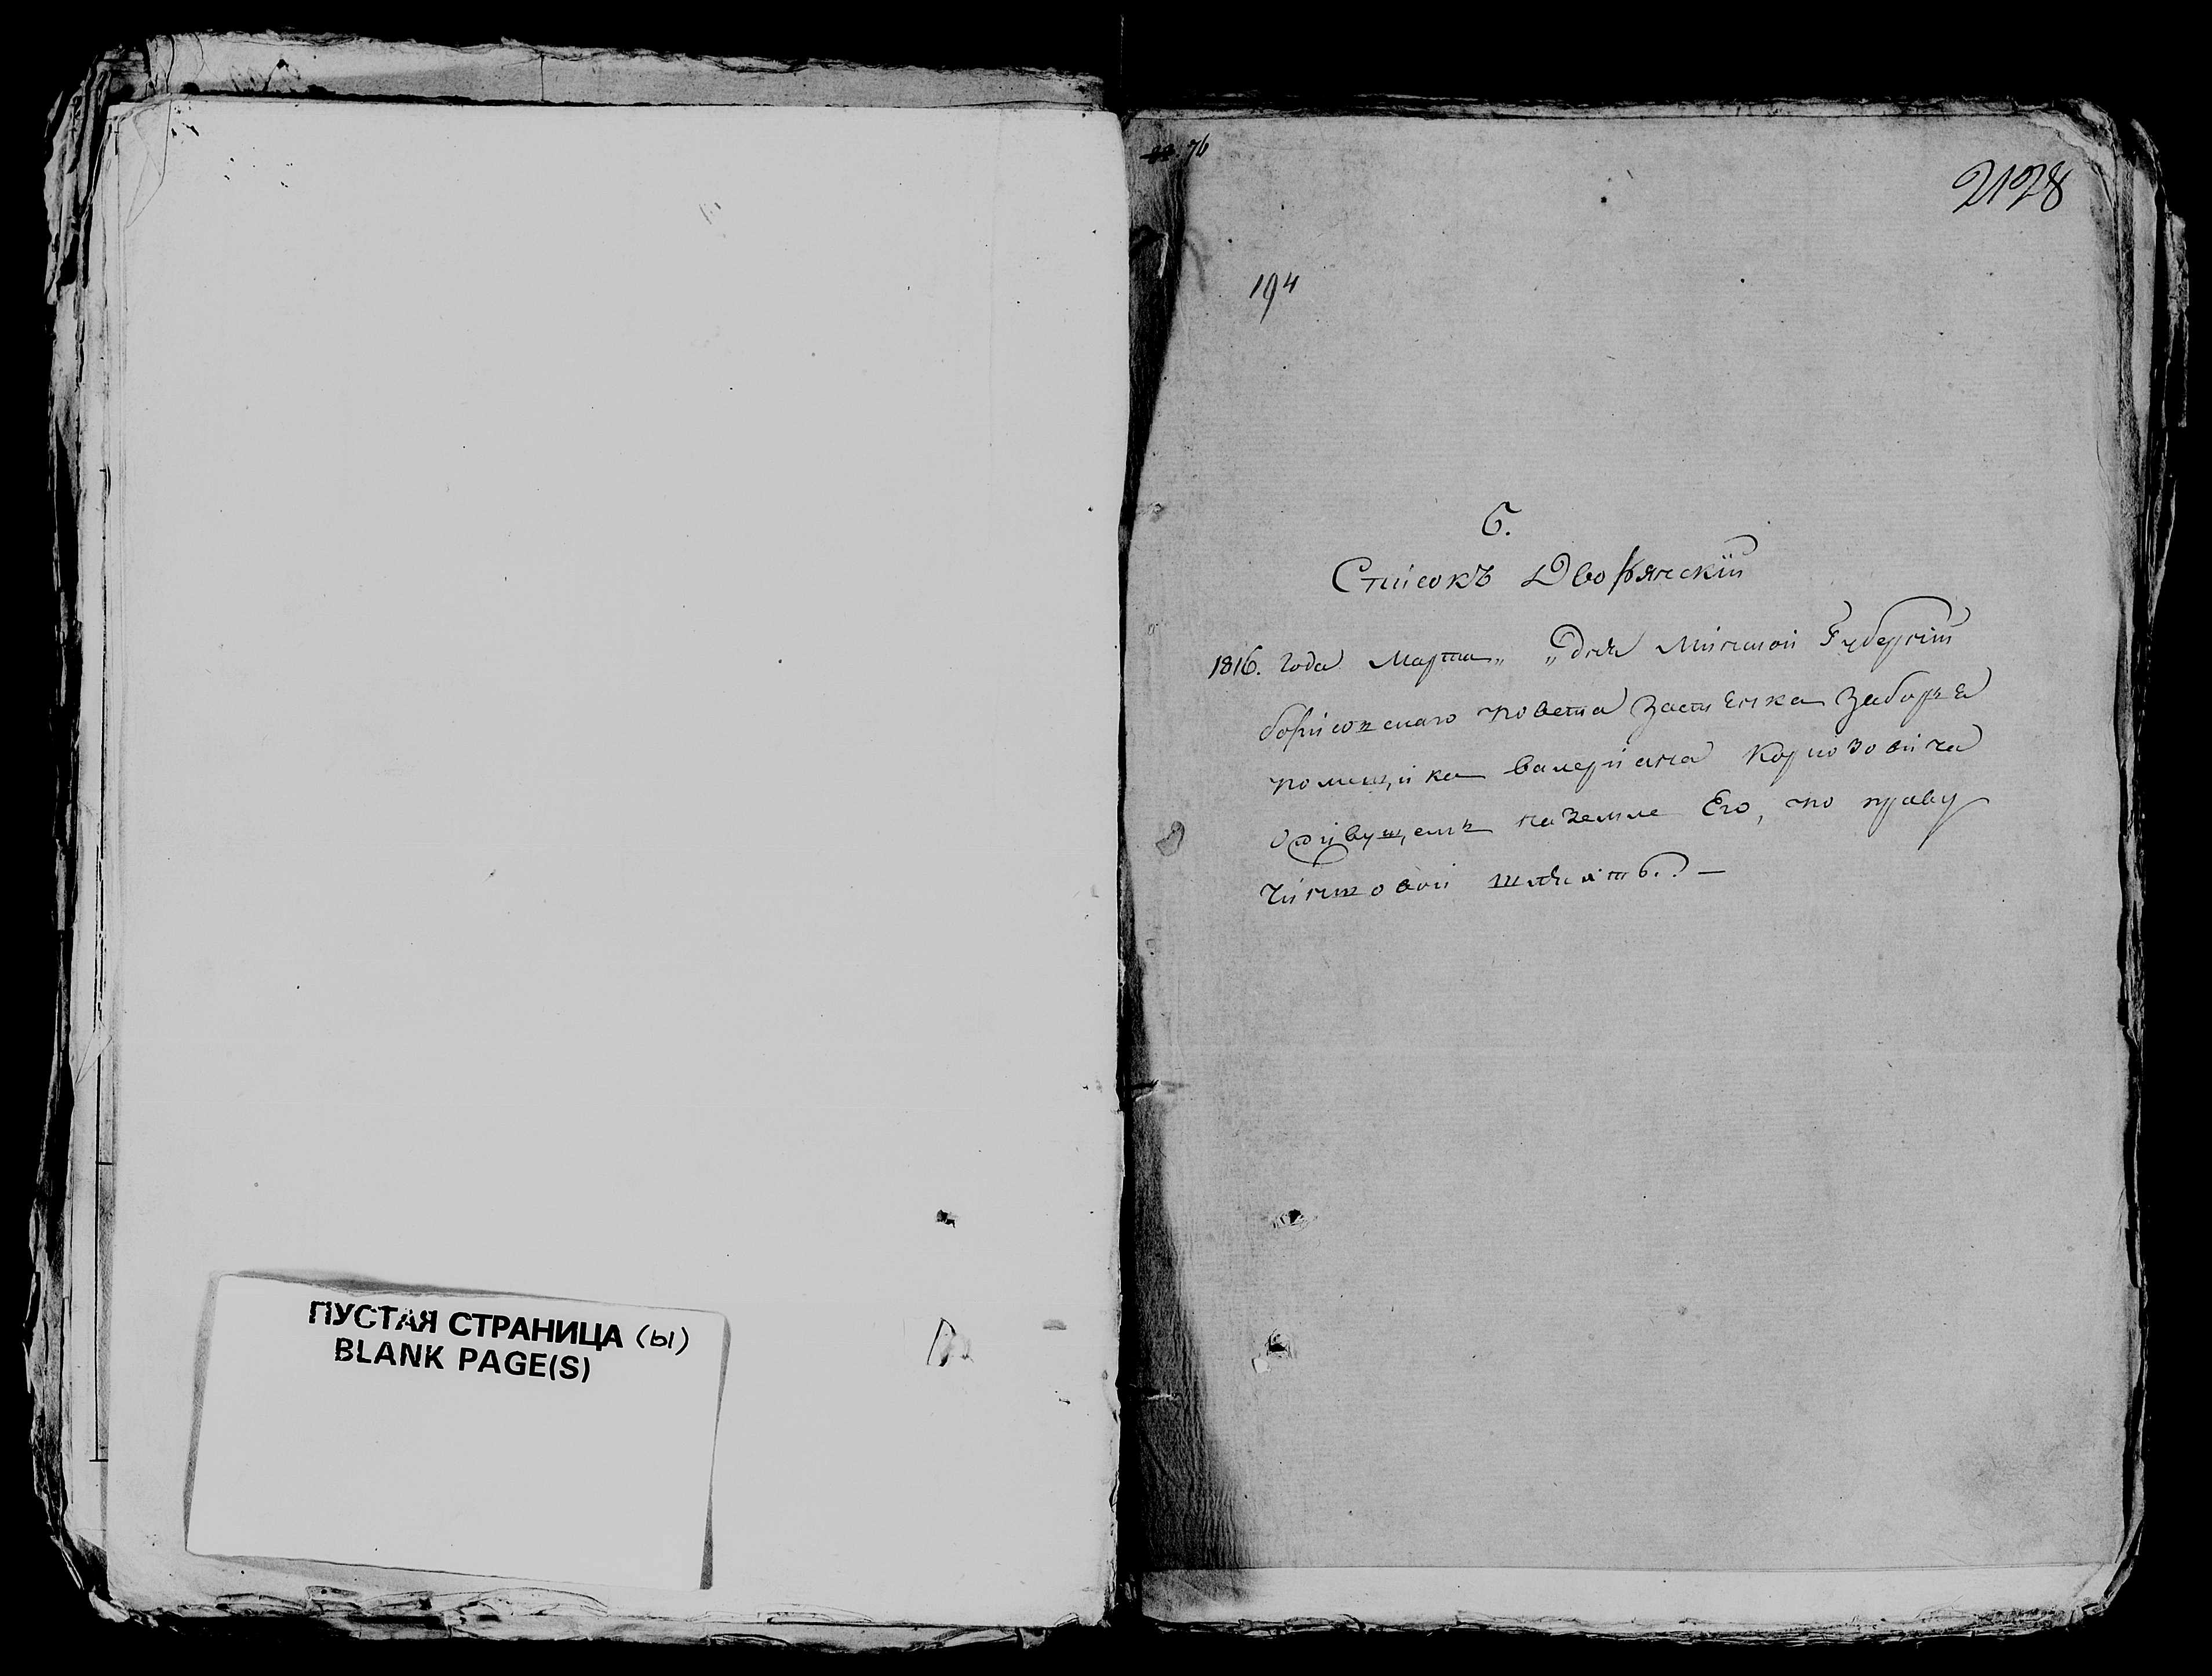 ПУСТАЯ СТРАНИЦА (ы)
BLANK PAGE(S)
76
2128
194
6.
Списокъ Дворянскій
1816. года Марта „ „ дня Минской Губерніи
борисовскаго повета Застенка Заборья
помещика валеріана Корнозовича
о живущей на земле Его, по праву
чиншовой шляхтѣ. —